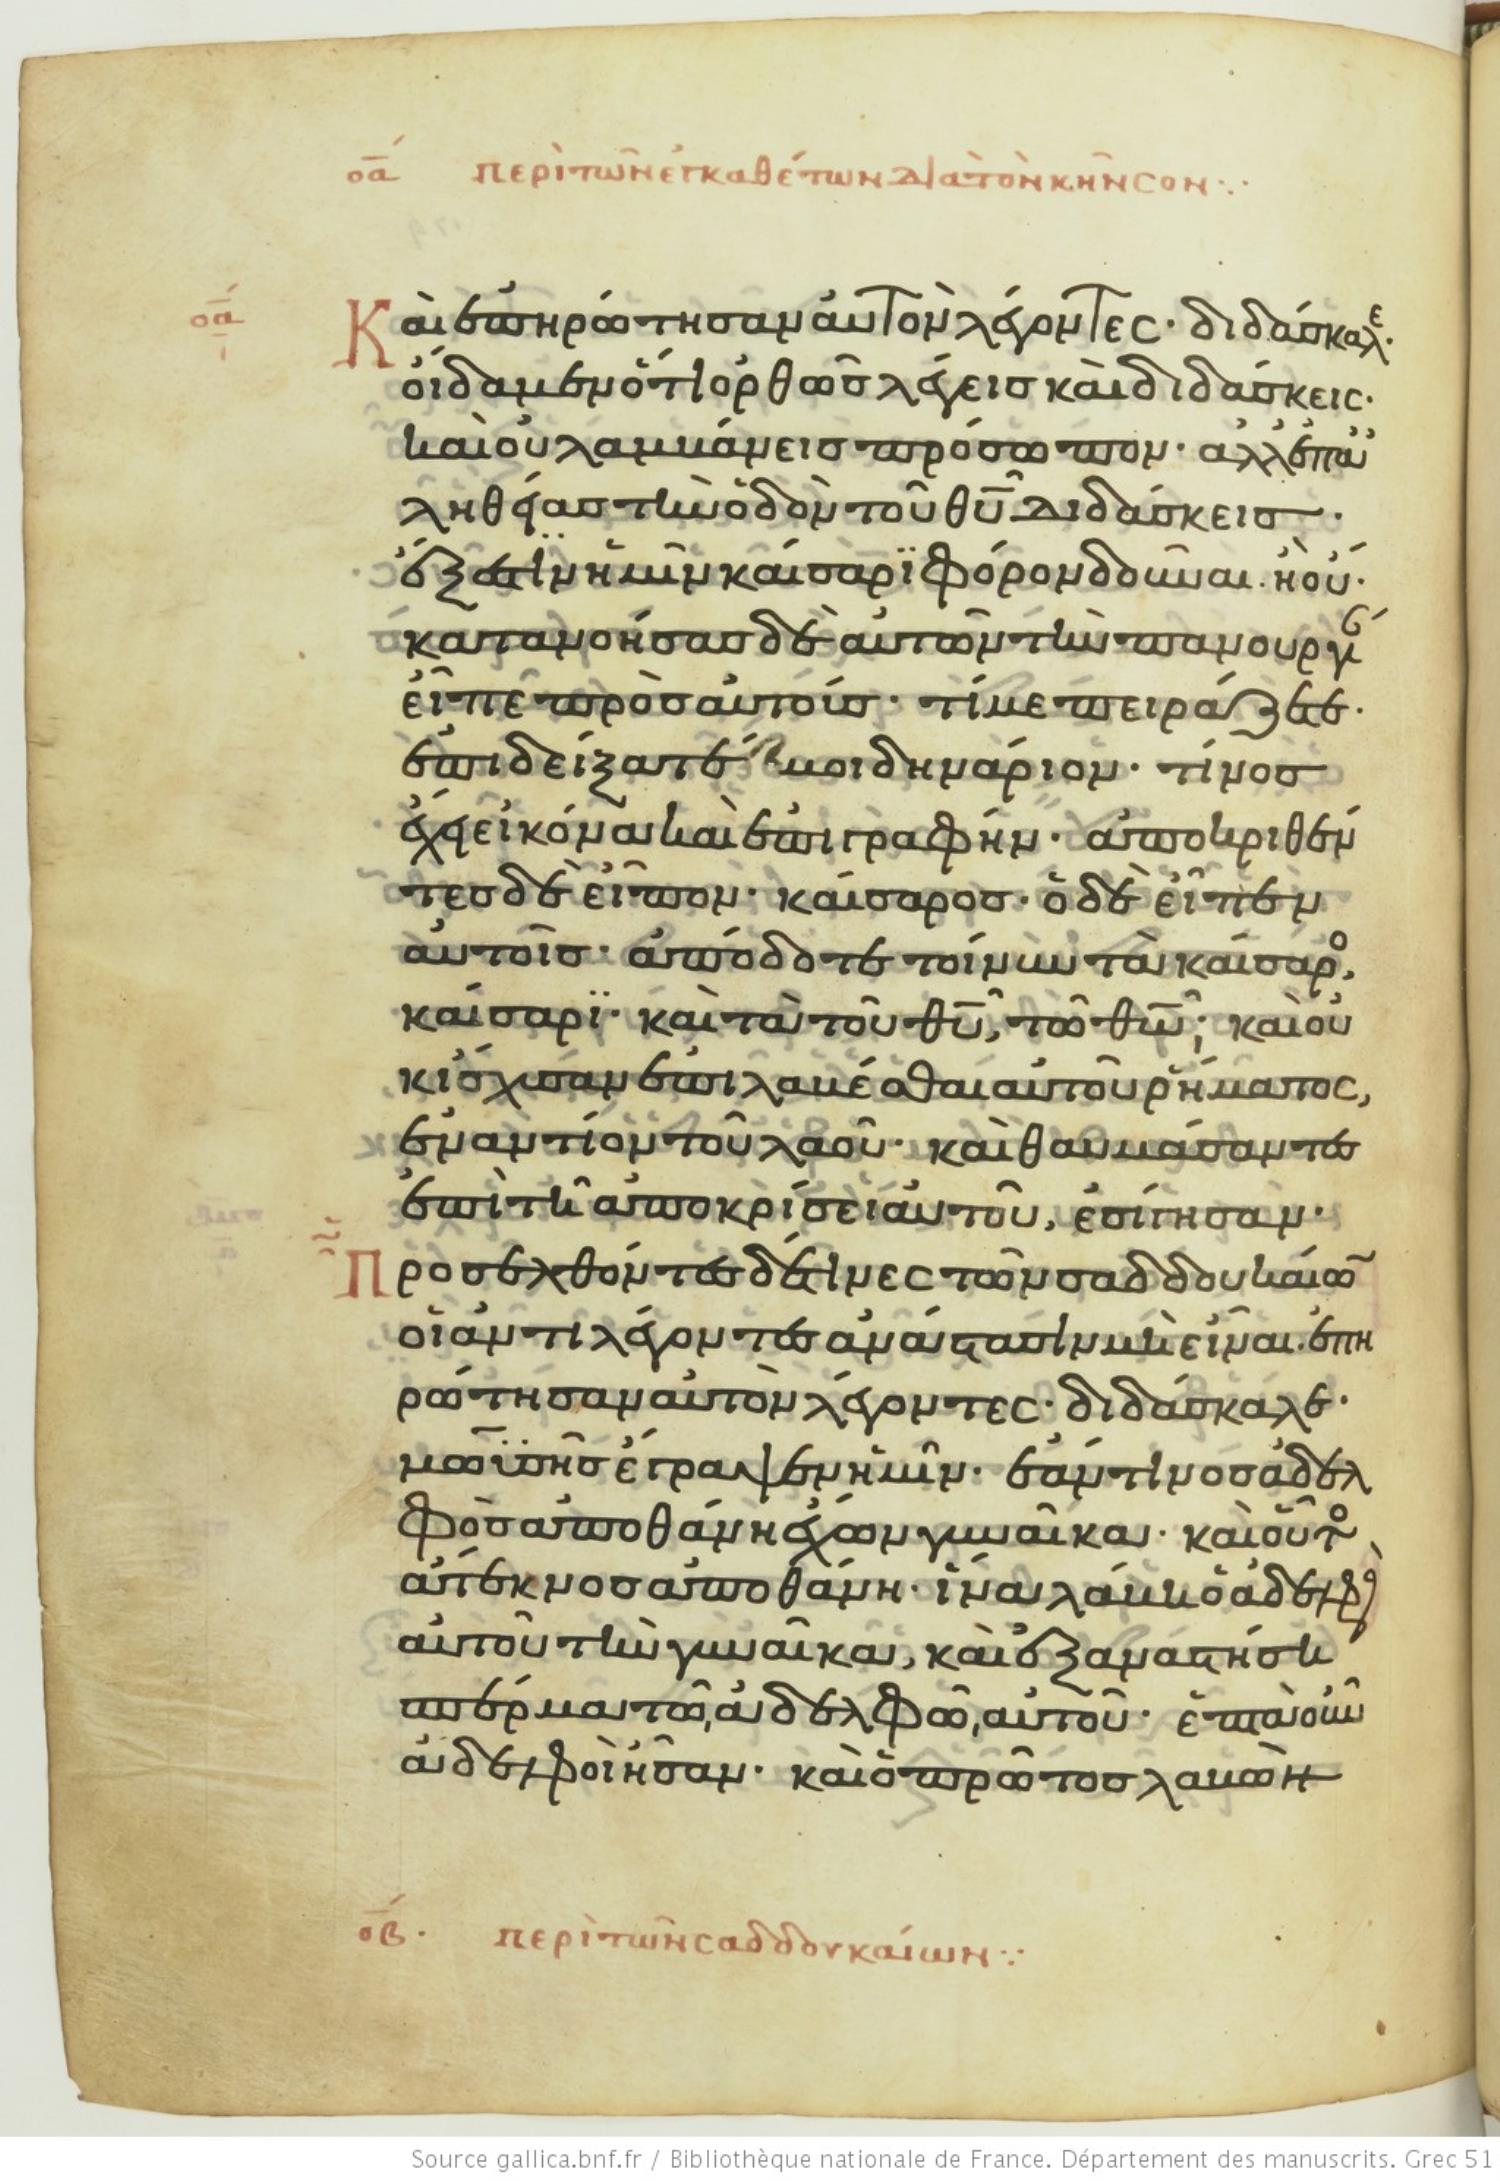 οα περὶ τῶν ἐγκαθέτων διὰ τὸν κῆνσον
οα Καὶ ἐπηρώτησαν αὐτὸν λέγοντες· διδάσκαλε·
οἴδαμεν ὅτι ὀρθῶς λέγεις καὶ διδάσκεις·
καὶ οὐ λαμβάνεις πρόσωπον· ἀλλ' ἐπ' ἀ
ληθείας τὴν ὁδὸν τοῦ θῦ διδάσκεις·
ἔξεστιν ἡμῖν καίσαρϊ φόρον δοῦναι· ἢ οὔ·
κατανοήσας δὲ αὐτῶν τὴν πανουργί
εἶπε πρὸς αὐτούς· τί με πειράζετε·
ἐπιδείξατέ μοι δηνάριον· τίνος
ἔχει εἰκόνα καὶ ἐπιγραφήν· ἀποκριθέν
τες δὲ εἶπον· καίσαρος· ὁ δὲ εἶπεν
αὐτοῖς· ἀπόδοτε τοίνυν τὰ καίσαρο,
καίσαρϊ· καὶ τὰ τοῦ θῦ, τῶ θῶ· καὶ οὐ
κ ἴσχυσαν ἐπιλαβέσθαι αὐτοῦ ῥήματος,
ἐναντίον τοῦ λαοῦ· καὶ θαυμάσαντες
ἐπὶ τῆ ἀποκρίσει αὐτοῦ, ἐσίγησαν·
Προσελθόντες δέ τινες τῶν σαδδουκαίω
οἱ ἀντιλέγοντες ἀνάστασιν μὴ εἶναι· ἐπη
ρώτησαν αὐτὸν λέγοντες· διδάσκαλε·
μωϋσῆς ἔγραψεν ἡμῖν· ἐάν τινος ἀδελ
φὸς ἀποθάνη ἔχων γυναῖκα· καὶ οὗτο
ἄτεκνος ἀποθάνη· ἵνα λάβη ὁ ἀδελφὸ
αὐτοῦ τὴν γυναῖκα, καὶ ἐξαναστήση
σπέρμα τῶ ἀδελφῶ αὐτοῦ· ἑπτὰ οὖν
ἀδελφοὶ ἦσαν· καὶ ὁ πρῶτος λαβὼν
οβ· περὶ τῶν σαδδουκαίων
Source gallica.bnf.fr / Bibliothèque nationale de France. Département des manuscrits. Grec 51